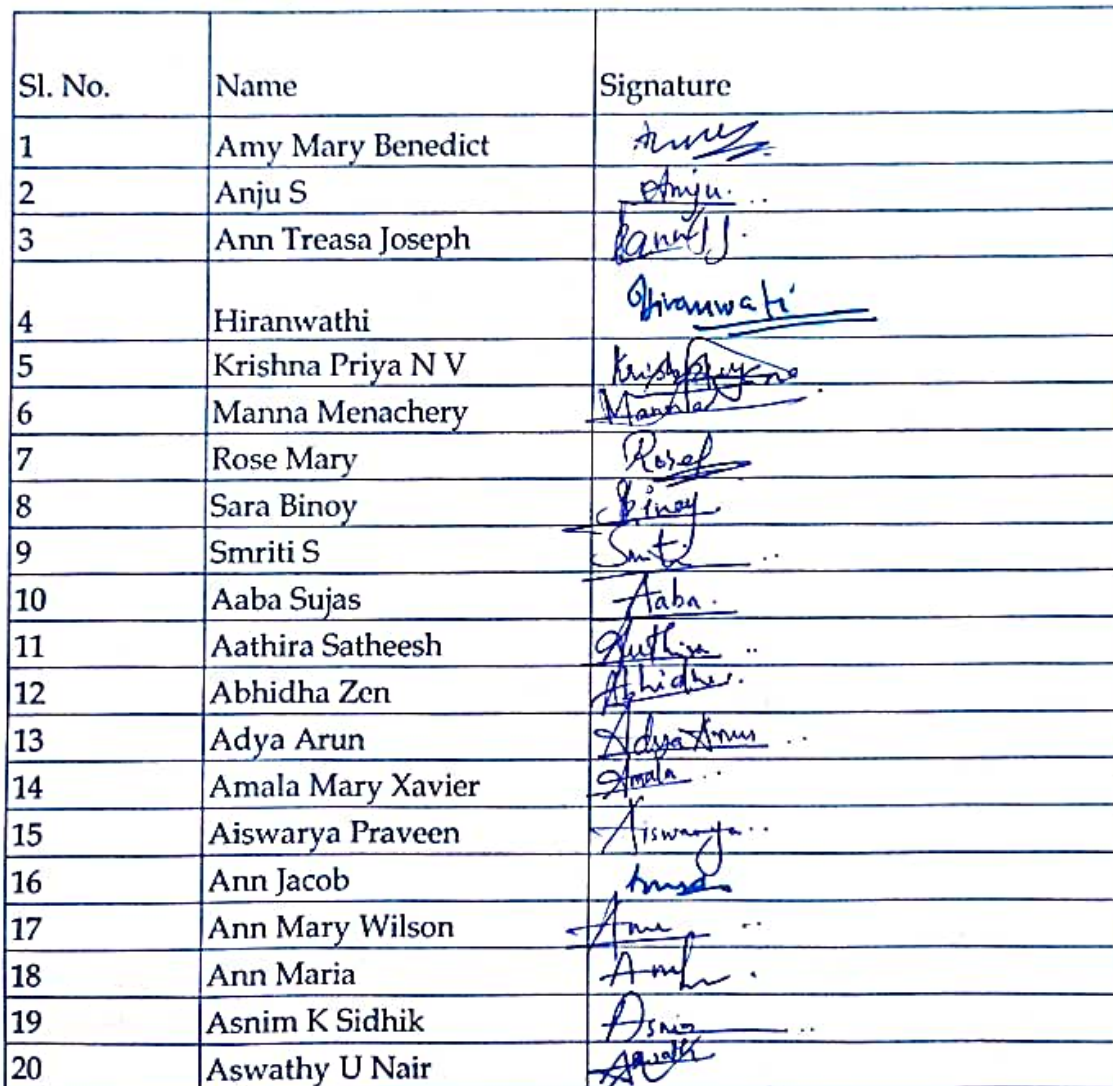 Sl. No. Name Signature
1 Amy Mary Benedict
2 Anju S Anju.
3 Ann Treasa Joseph
4 Hiranwathi Hiranwati
5 Krishna Priya N V
6 Manna Menachery Manna
7 Rose Mary Rose
8 Sara Binoy Binoy
9 Smriti S
10 Aaba Sujas Aaba.
11 Aathira Satheesh
12 Abhidha Zen Abhidha.
13 Adya Arun Adya Arun
14 Amala Mary Xavier Amala
15 Aiswarya Praveen Aiswarya
16 Ann Jacob
17 Ann Mary Wilson
18 Ann Maria
19 Asnim K Sidhik
20 Aswathy U Nair